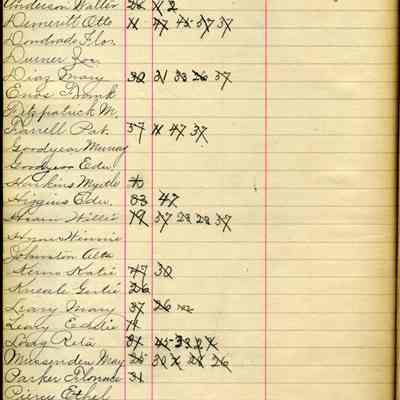 Anderson Walter 26 X 2
Demeritt Otto 11 47 45 37 37
Dondrado Flor.
Durner Jos.
Diaz Mary 30 31 33 26 37
Enos Frank
Fitzpatrick M.
Farrell Pat. 37 11 47 37
Goodyear Murray
Goodyear Edw.
Harkins Myrtle
Higgins Edw. 83 47
Hiram Willie 19 37 28 28 37
Hynes Winnie
Johnston Alta
Kerns Katie 47 30
Kneale Gertie 26
Leary Mary 37 26
Leary Eddie
Lodg Reta 31 45 33 27
Mussenden May 25 30 28 26
Parker Florence 31
Piercy Ethel